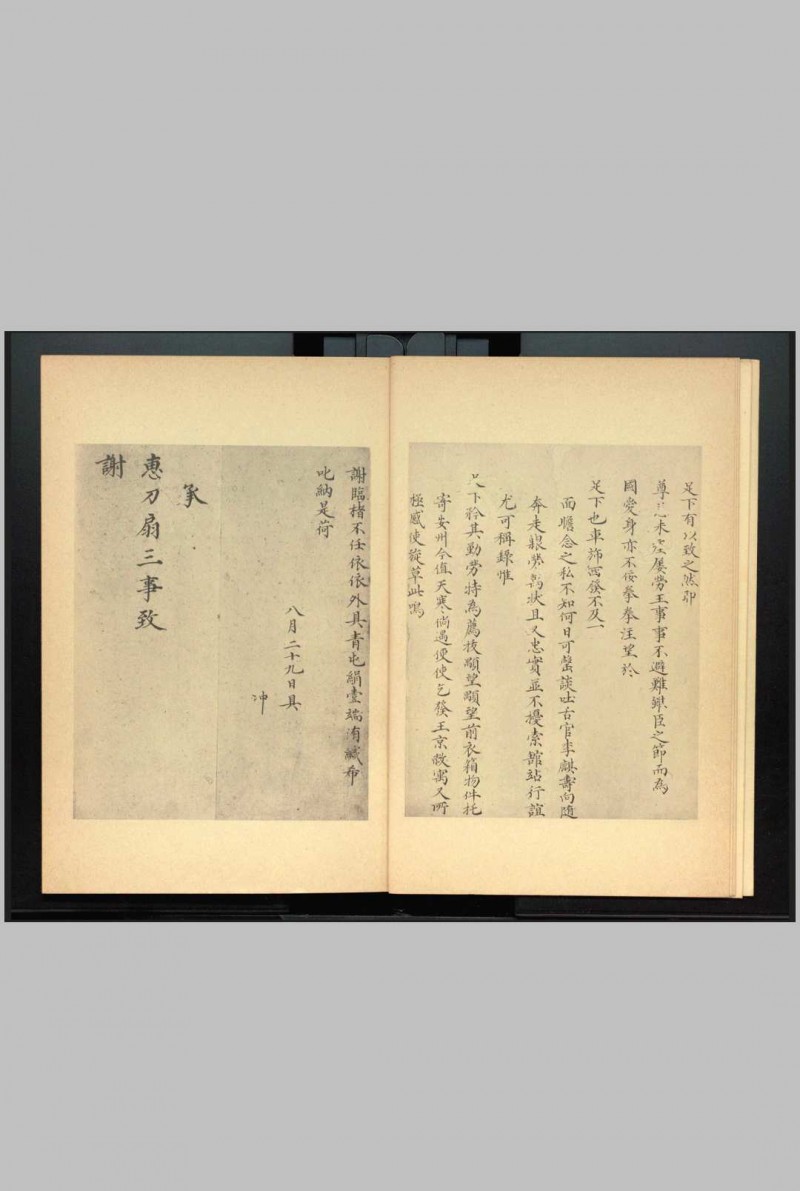 足下有以致之然耶
尊 未 屢勞王事事不避難雖臣之節而為
國愛身亦不佞拳拳注望於
足下也車旆西發不及一
而瞻念之私不如何日可罄談吐古官李麒壽向隨
奔走艱勞萬狀且又忠實並不擾索館站行誼
尤可稱錄惟
足下矜其勤勞特為薦拔顒望顒望前衣箱物件托
寄安州今值天寒倘遇便使乞發王京敝寓又所
極感使旋草此鳴
謝臨楮不任依依外具青屯絹壹端洧緘希
叱納是荷
八月二十九日具
冲
承
惠刀扇三事致
謝